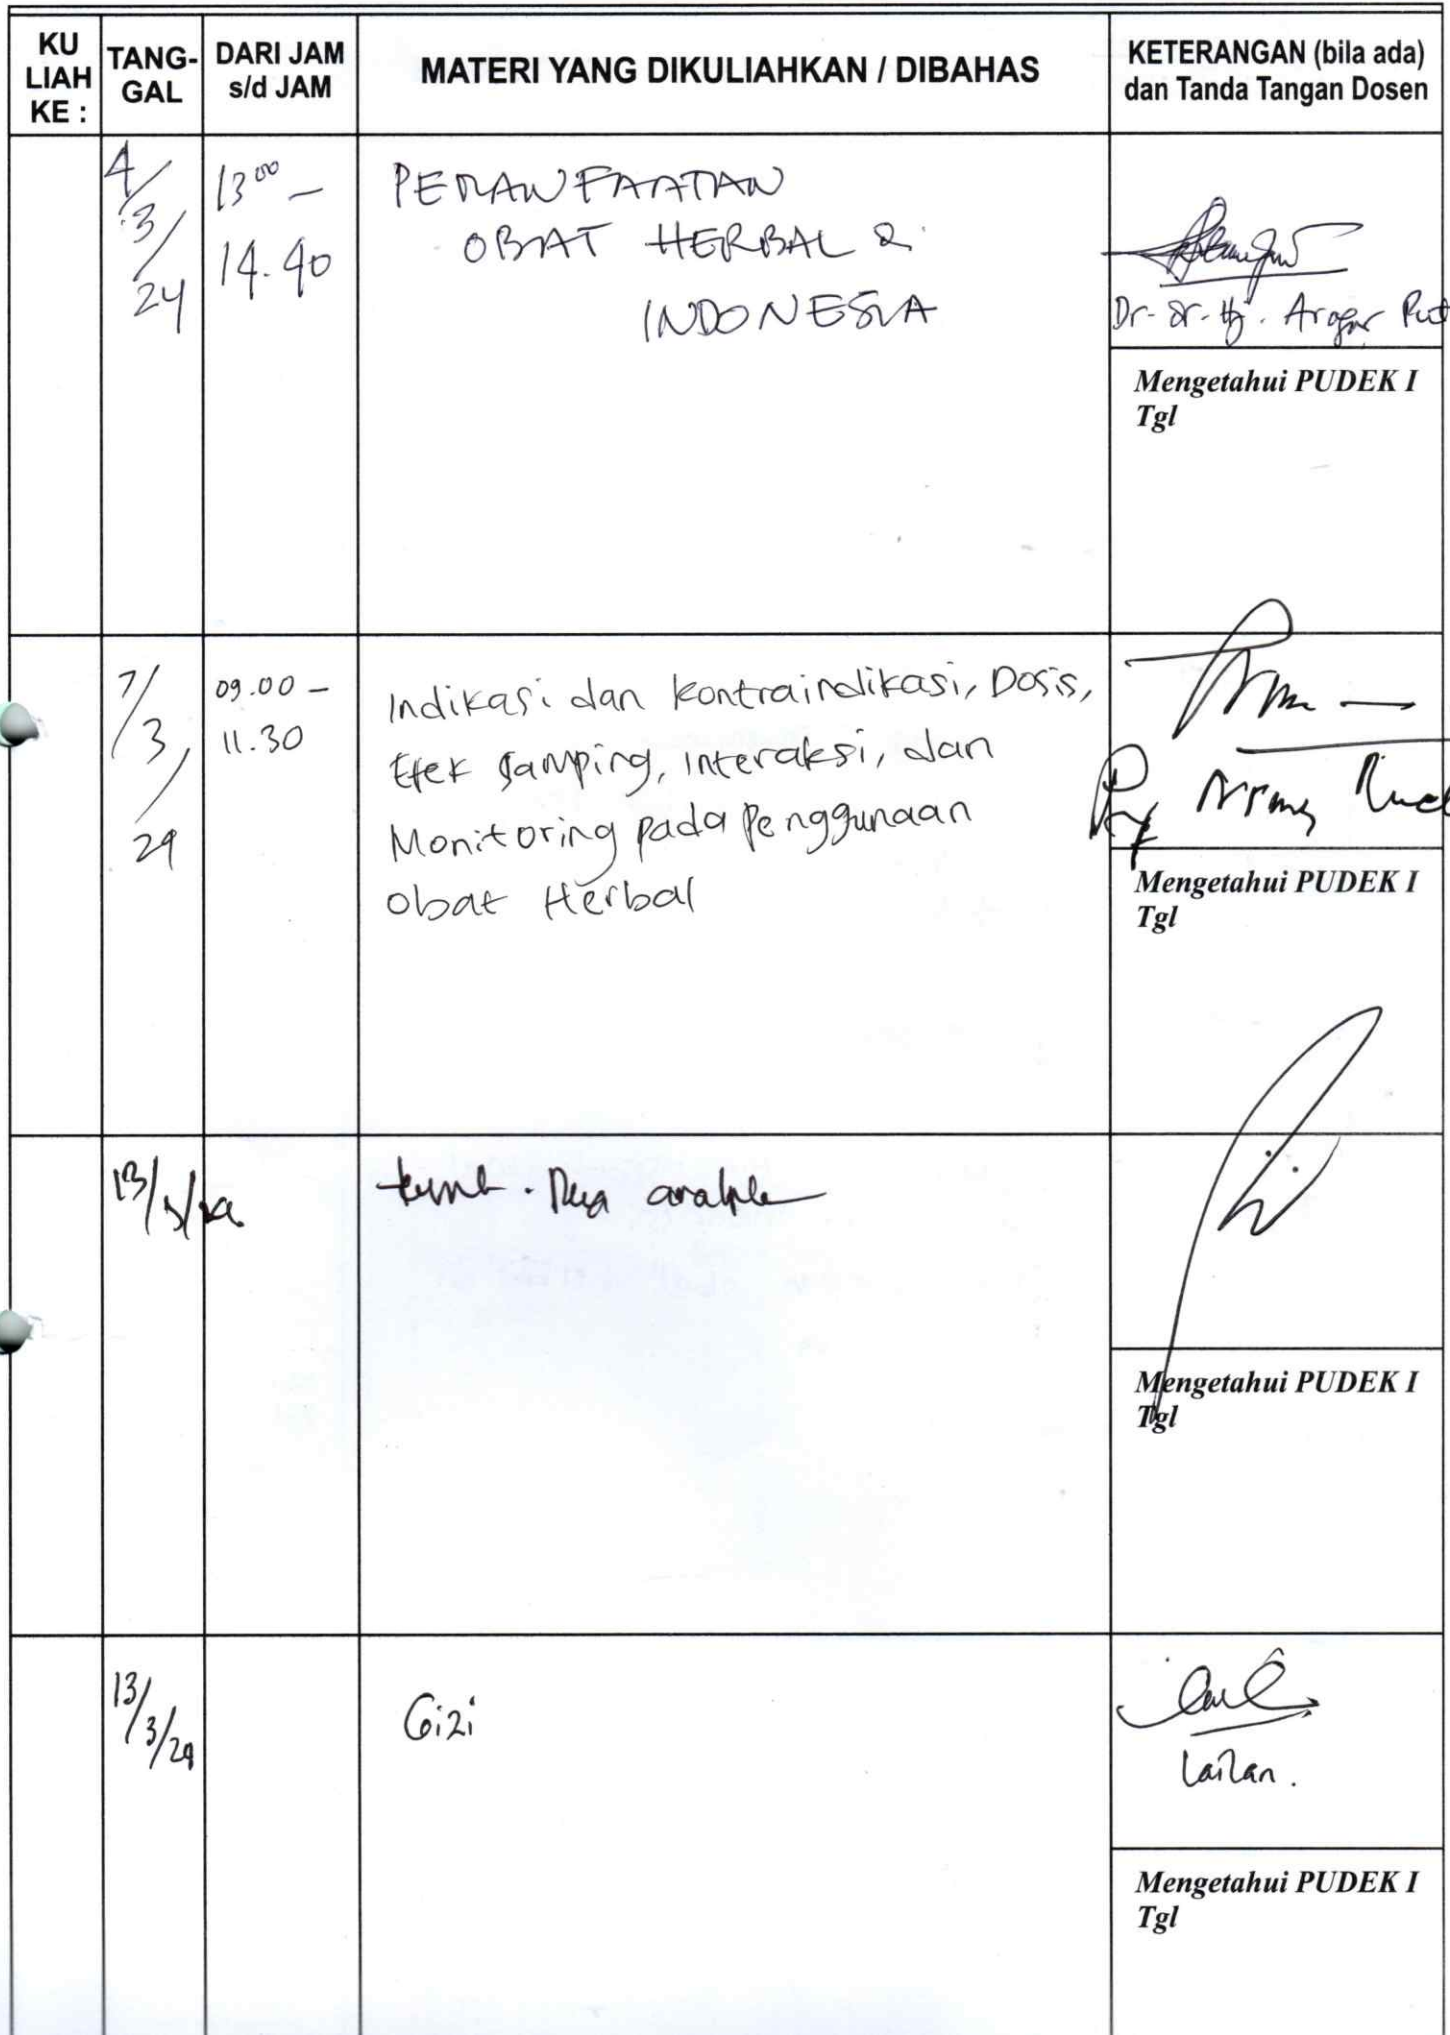 KU LIAH KE :
TANG-GAL
DARI JAM s/d JAM
MATERI YANG DIKULIAHKAN / DIBAHAS
KETERANGAN (bila ada) dan Tanda Tangan Dosen
4/3/24
13.00 -
14.40
PEMANFAATAN
OBAT HERBAL
INDONESIA
Mengetahui PUDEK I
Tgl
7/3/24
09.00 -
11.30
Indikasi dan kontraindikasi, Dosis,
Efek Samping, interaksi, dan
Monitoring pada Penggunaan
Obat Herbal
Mengetahui PUDEK I
Tgl
13/3/24
Mengetahui PUDEK I
Tgl
13/3/24
Gizi
Lailan.
Mengetahui PUDEK I
Tgl